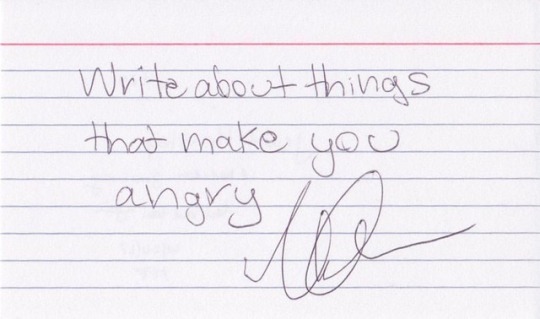 Write about things
that make you
angry